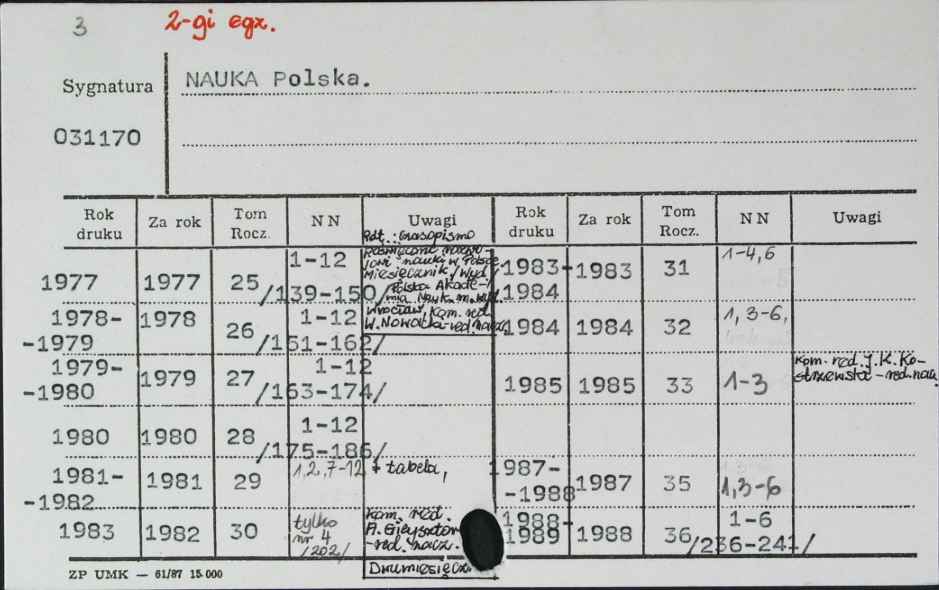 3 2-gi egz.
Sygnatura NAUKA Polska.
031170
Rok druku Za rok Tom Rocz. NN Uwagi Rok druku Za rok Tom Rocz. NN Uwagi
1977 1977 25 1-12 /139-150/
Pdt.: Czasopismo
poświęcone rozwo-
jowi nauki w Polsce
Miesięcznik/Wyd.
Polska Akade-
mia Nauk. m. wyd.
Wrocław, Kom. red.
W. Nowacka-red. nacz.
1983-1984 1983 31 1-4,6
1978-
-1979 1978 26 1-12 /151-162/
1984 1984 32 1, 3-6,
1979-
-1980 1979 27 1-12 /163-174/
1985 1985 33 1-3 Kom. red. J.K. Ko-
strzewski - red. nau.
1980 1980 28 1-12 /175-186/
1981-
-1982 1981 29 1,2,7-12 + tabela,
1987-
-1988 1987 35 1,3-6
1983 1982 30 tylko
nr 4
/202/
Kom. red.
A. Gieysztor
-red. nacz.
Dwumiesięcz.
1988-
1989 1988 36 1-6 /236-241/
ZP UMK — 61/87 15.000